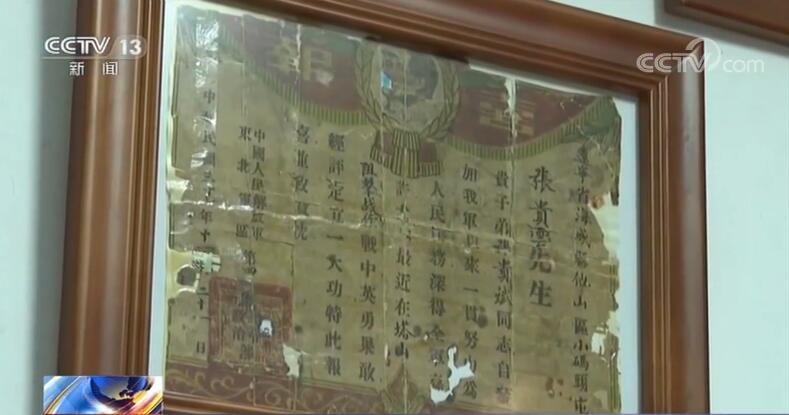 CCTV 13
新闻
CCTV.com
喜報
遼寧省海城縣他山區小碼頭屯
張貴雲先生
貴子弟張貴斌同志自參
加我軍以來一貫努力為
人民服務深得全
最近在塔山
阻擊戰作戰中英勇果敢
經評定立一大功特此報
喜並致賀忱
中國人民解放軍
東北軍區第
政治部
中華民國三十年十二十一日